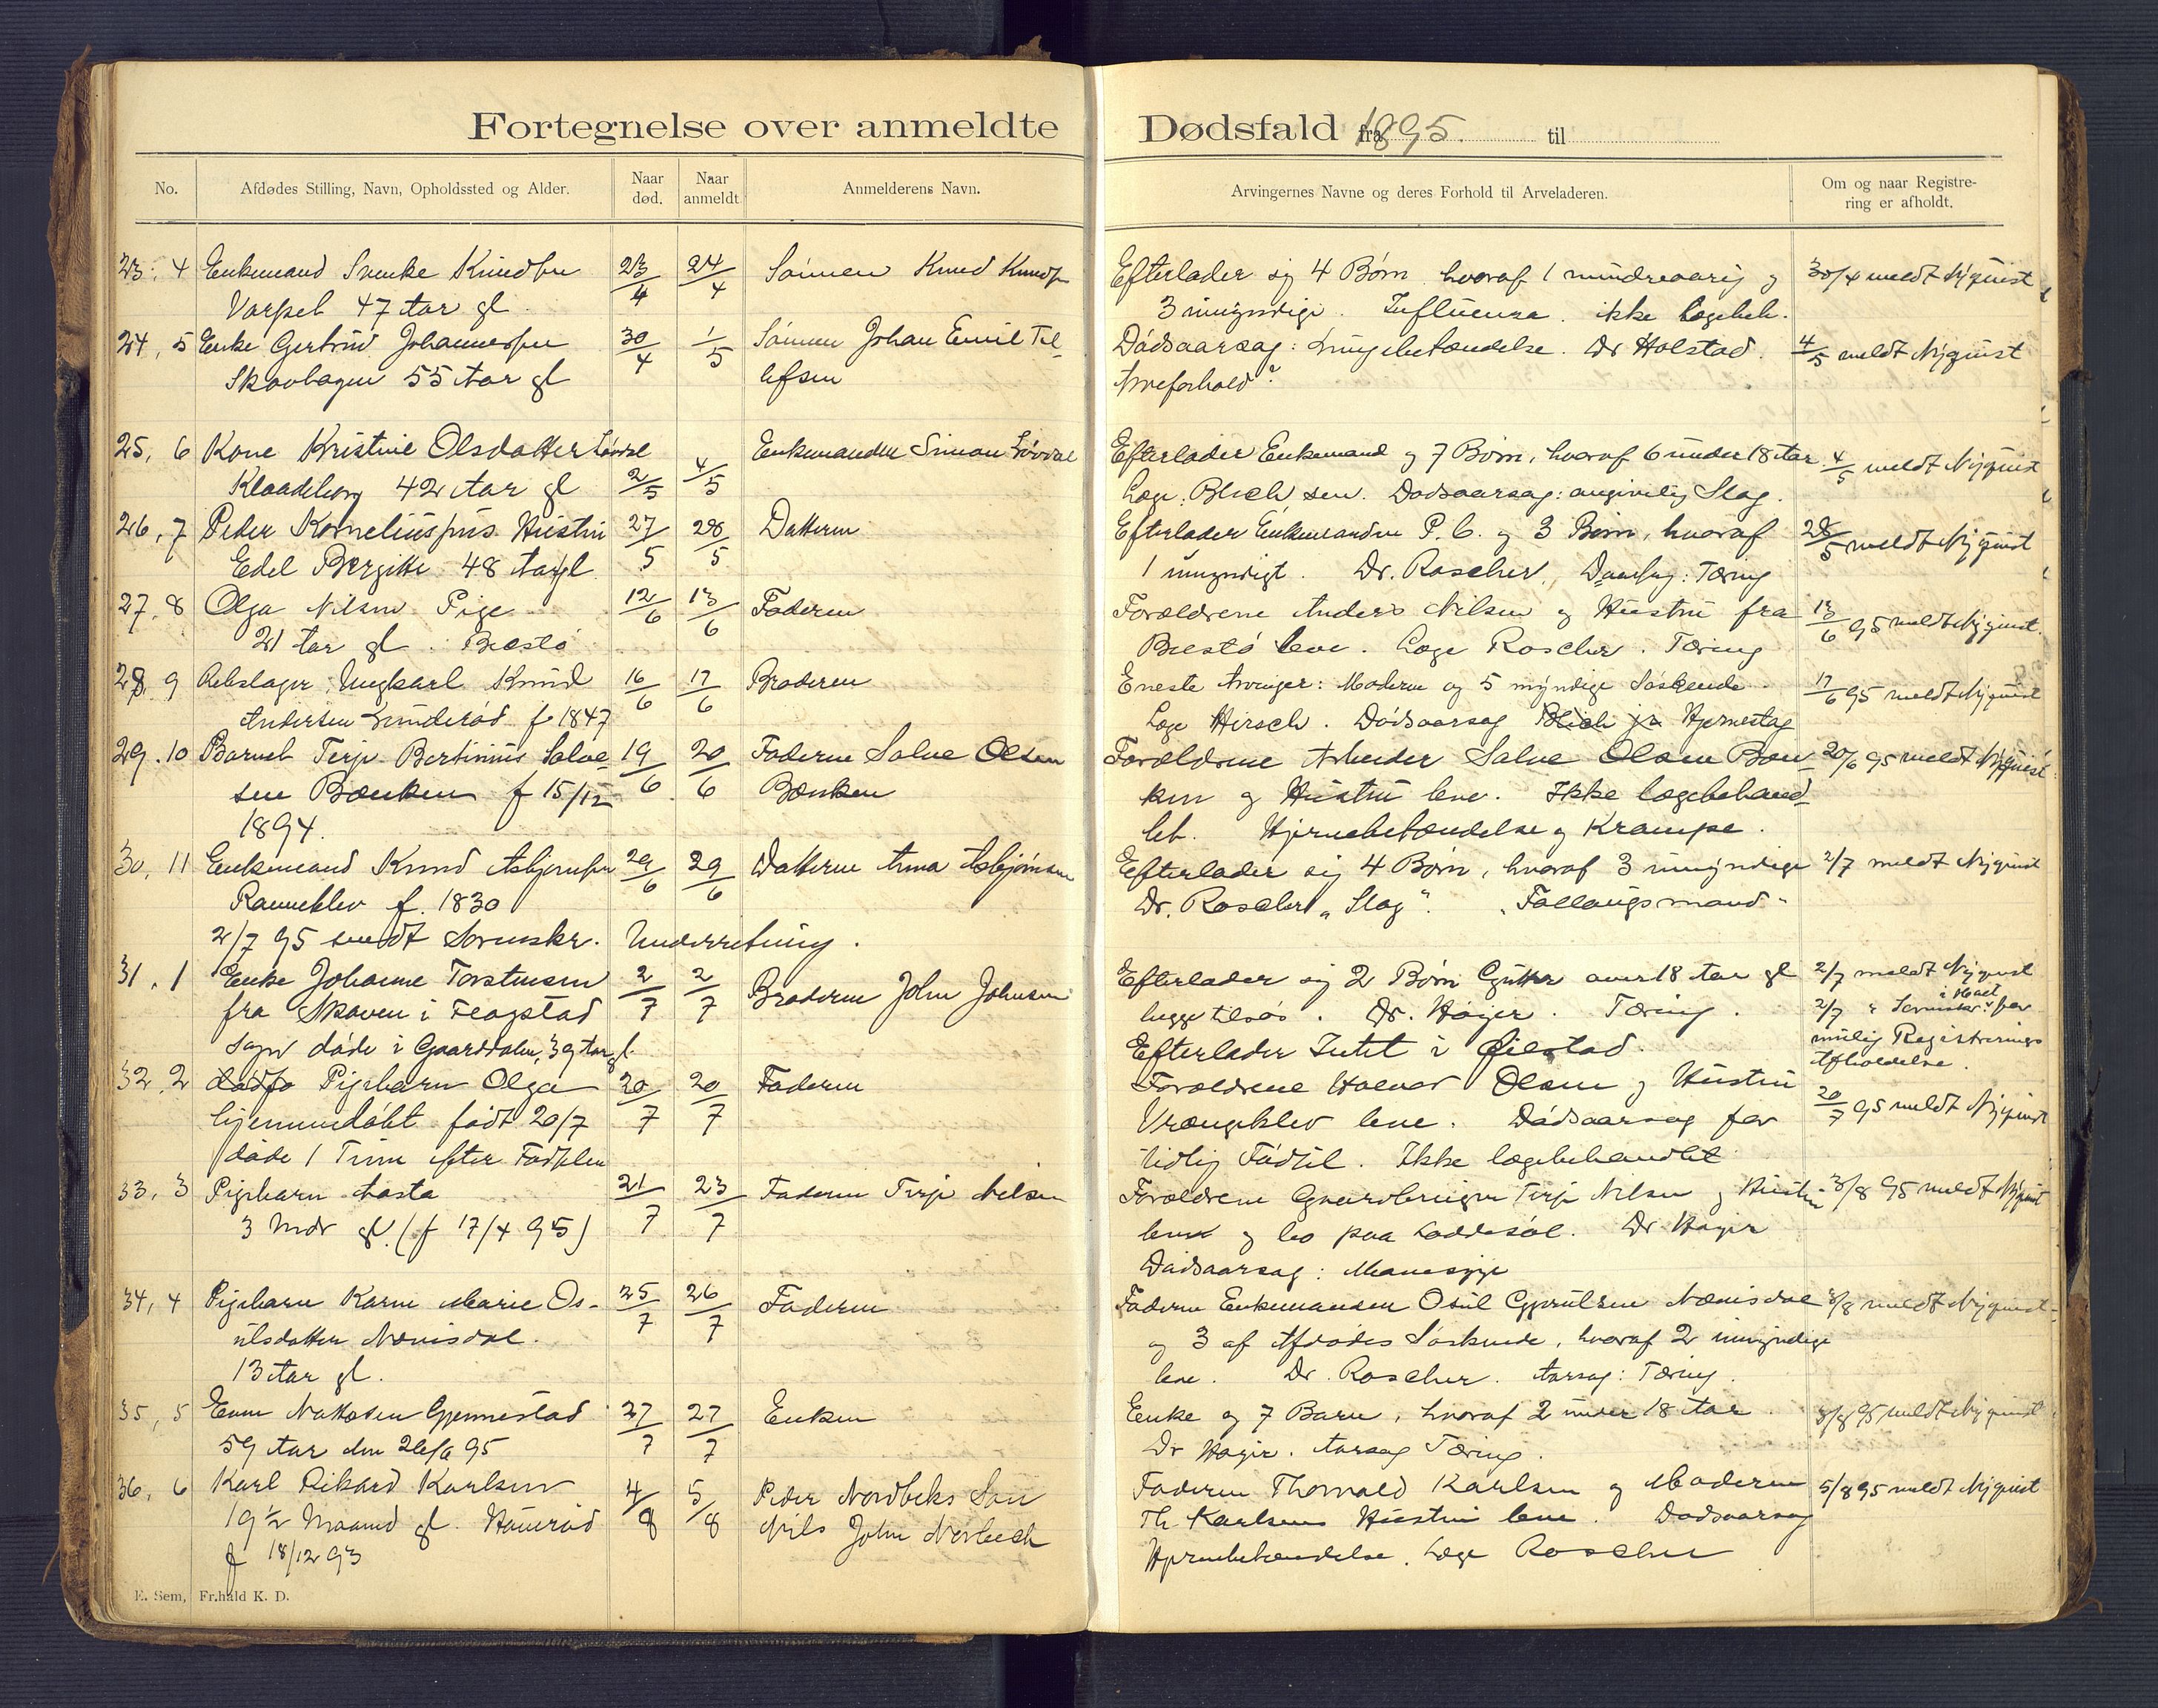 Fortegnelse over anmeldte
Dødsfald fra 1895. til
No.
Afdødes Stilling, Navn, Opholdssted og Alder.
Naar død.
Naar anmeldt.
Anmelderens Navn.
Arvingernes Navne og deres Forhold til Arveladeren.
Om og naar Registre-
ring er afholdt.
23, 4 Enkemand Svenke Knudsen 23/4 24/4 Sønnen Knud Knudsen
47 Aar gl.
Efterlader sig 4 Børn hvoraf 1 mindreaarig og 30/4 meldt Nyquist
3 umyndige. Influenza. ikke lægebeh.
24, 5 Enke Gertrud Johannessen 30/4 1/5 Sønnen Johan Emil Tel-
Skovhagen 55 Aar gl lefsen
Dødsaarsag: Lungebetændelse. Dr Holstad. 4/5 meldt Nyquist
Arveforhold?
25, 6 Kone Kristine Olsdatter Løvdal 2/5 4/5 Enkemanden Simon Løvdal
Klaadeborg 42 Aar gl
Efterlader Enkemand og 7 Børn, hvoraf 6 under 18 Aar 4/5 meldt Nyquist
Læge Blich sen. Dødsaarsag: angivelig Slag.
26, 7 Peder Korneliussens Hustru 27/5 28/5 Datteren
Edel Bergitte 48 Aar gl.
Efterlader Enkemanden P. C. og 3 Børn, hvoraf 28/5 meldt Nyquist
1 umyndigt. Dr. Roscher. Daarsag: Tæring
27, 8 Olga Nilsen Pige 12/6 13/6 Faderen
21 Aar gl. Biestø
Forældrene Anders Nilsen og Hustru fra 13/6 95 meldt Nyquist.
Biestø leve. Læge Roscher. Tæring
28, 9 Rebslager, Ungkarl Knud 16/6 17/6 Broderen
Andersen Lunderød f 1847
Eneste Arvinger: Moderen og 5 myndige Søskende. 17/6 95 meldt Nyquist
Læge Hirsch. Dødsaarsag Blich jr Hjerneslag
29. 10 Barnet Terje Bertinius Salve- 19/6 20/6 Faderen Salve Olsen
sen Bænken f 15/12 Bænken
1894.
Forældrene Arbeider Salve Olsen Bæn- 20/6 95 meldt Nyquist
ken og Hustru leve. Ikke lægebehand-
let. Hjernebetændelse og Krampe.
30, 11 Enkemand Knud Asbjørnsen 29/6 29/6 Datteren Anna Asbjørnsen
Ranneklev f. 1830
Efterlader sig 4 Børn, hvoraf 3 umyndige 2/7 meldt Nyquist
Dr. Roscher „Slag“. „Fallaugsmand“
2/7 95 sendt Sorenskr. Underretning.
31, 1 Enke Johanne Torstensen 2/7 2/7 Broderen John Johnsen
fra Skoven i Flagstad
Sogn døde i Gaarddalen, 39 Aar gl.
Efterlader sig 2 Børn Gutter over 18 Aar gl 2/7 meldt Nyquist
begge tilsøs. Dr. Høyer. Tæring. 2/7 " Sorenskr. i Hast for
Efterlader Intet i Øiestad. mulig Registrerings
Afholdelse.
32, 2 Pigebarn Olga 20/7 20/7 Faderen
hjemmedøbt født 20/7
døde 1 Time efter Fødselen
Forældrene Halvor Olsen og Hustru
Vrængeklev leve. Dødsaarsag for 20/7 95 meldt Nyquist
tidlig Fødsel. Ikke lægebehandlet
33, 3 Pigebarn Aasta 21/7 23/7 Faderen Terje Nilsen
3 Mdr gl. (f 17/4 95)
Forældrene Terje Nilsen og Hustru 3/8 95 meldt Nyquist
lever og bo paa Loddesøl. Dr Høyer
Dødsaarsag: Mavesyge
34, 4 Pigebarn Karen Marie Os- 25/7 26/7 Faderen
ulsdatter Nævisdal.
13 Aar gl.
Faderen Enkemanden Osul Gjerulsen Nævisdal 3/8 meldt Nyquist
og 3 af Afdødes Søskende, hvoraf 2 umyndige
leve. Dr. Roscher. Aarsag: Tæring.
35, 5 Even Gjennestad 27/7 27/7 Enken
59 Aar den 26/6 95
Enke og 7 Børn, hvoraf 2 under 18 Aar 3/8 95 meldt Nyquist
Dr Høyer. Aarsag Tæring.
36, 6 Karl Rikard Karlsen 4/8 5/8 Peder Nordbeks Søn
19½ Maaned gl. Haurød Nils John Norbech
f 18/12 93
Faderen Thorvald Karlsen og Moderen 5/8 95 meldt Nyquist
Th. Karlsens Hustru leve. Dødsaarsag
Hjernebetændelse. Læge Roscher
E. Sem, Fr.hald K. D.